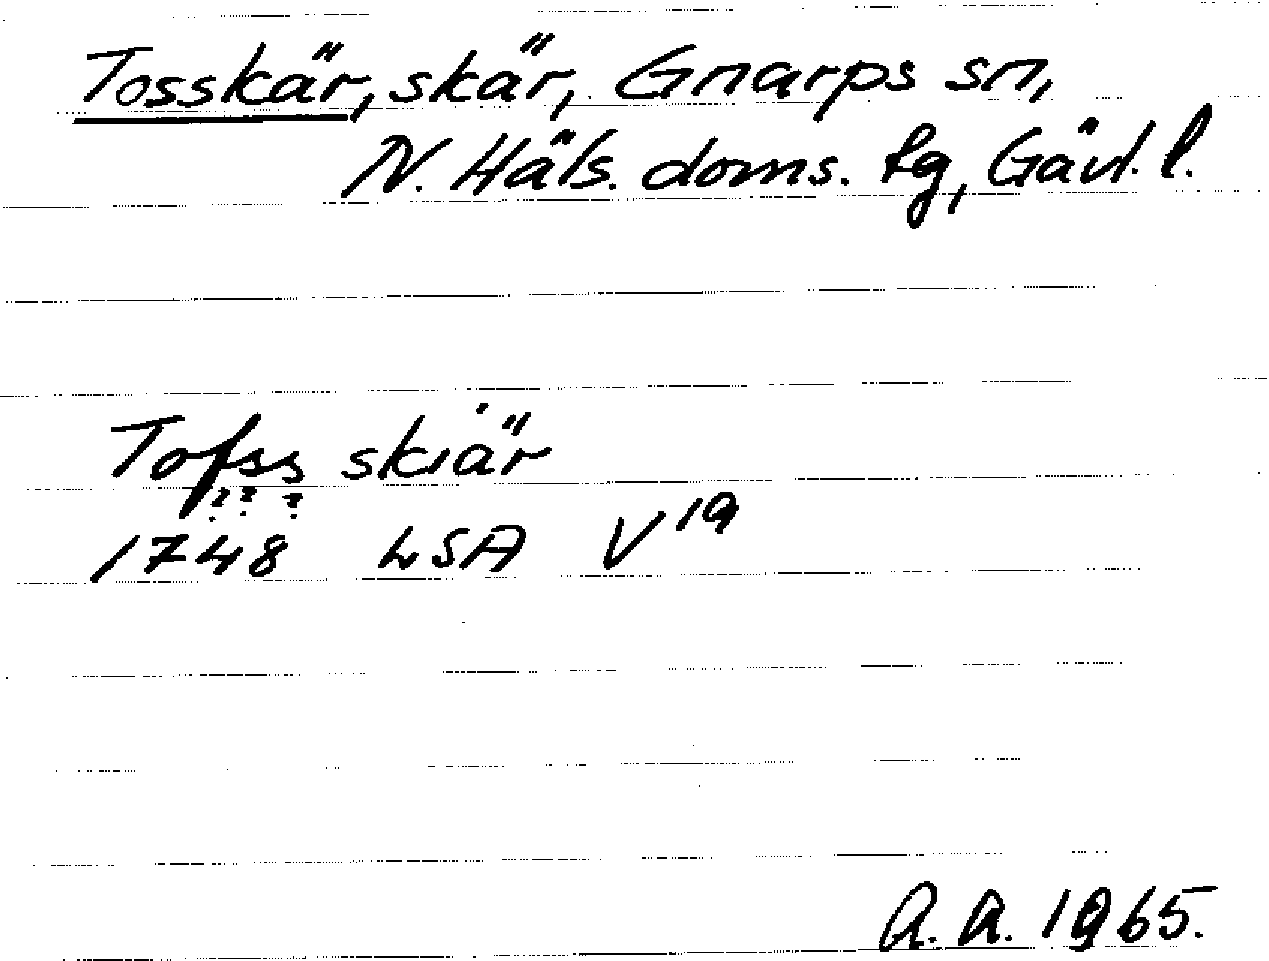 Tosskär, skär, Gnarps sn,
N. Häls. doms. tg, Gävl. l.
Tofss skiär
? ? ?
1748 LSA V 19
A. A. 1965.